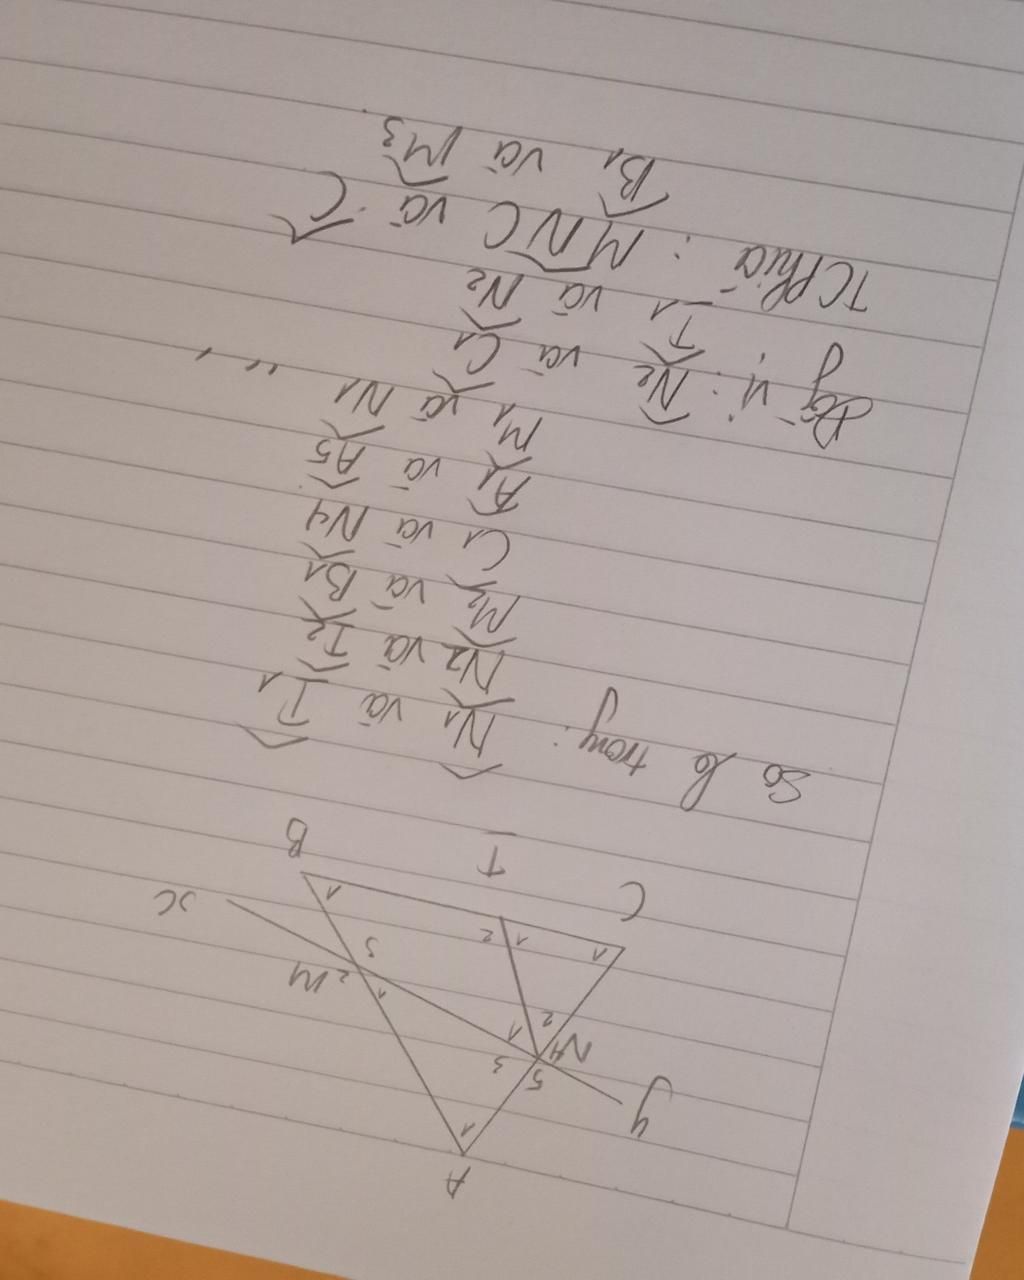 A
1
y
5
N 4 3
1 M 2
2 1
3
x
1 1 2 1
C I B
So le trong: N̂1 và Î1
N̂2 và Î2
M̂2 và B̂1
C1 và N̂4
Â1 và Â5
M̂1 và N̂1 ...,
Đồng vị: N̂2 và Ĉ1
Î1 và N̂2
TCPhía: M̂NC và Ĉ
B̂1 và M̂3